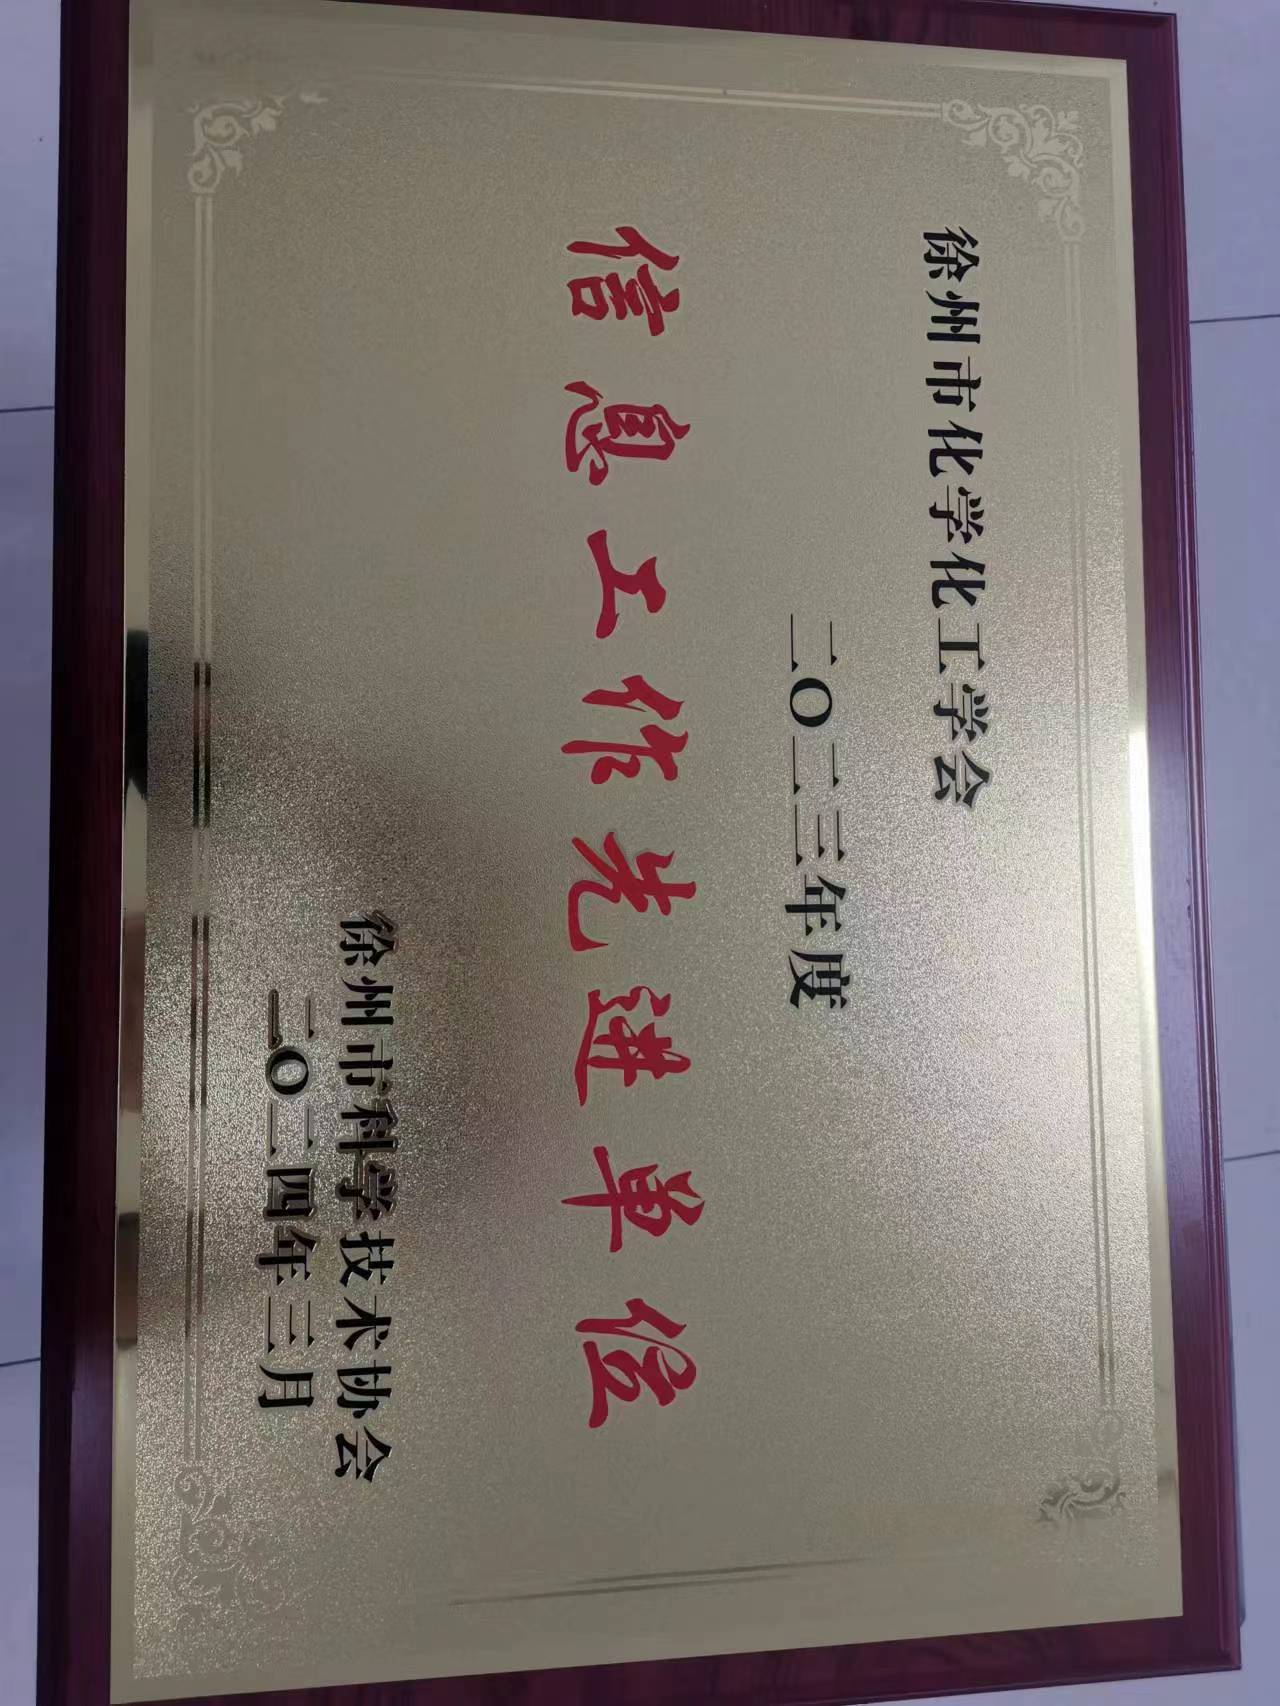 徐州市化学化工学会
二〇二三年度
信息工作先进单位
徐州市科学技术协会
二〇二四年三月